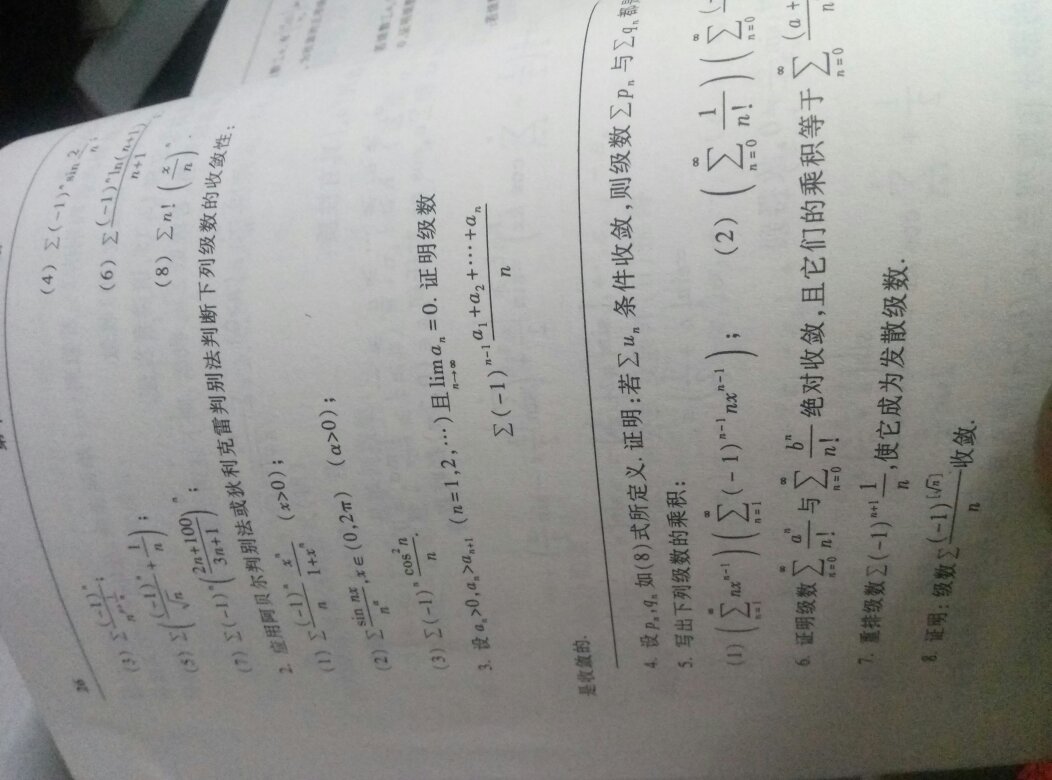 26
(3) ∑ (-1)ⁿ / n^{p+1/n};
(4) ∑(-1)ⁿ sin 2/n;
(5) ∑((-1)ⁿ/√n + 1/n);
(6) ∑ (-1)ⁿ ln(n+1) / (n+1);
(7) ∑(-1)ⁿ ((2n+100)/(3n+1))ⁿ;
(8) ∑ n! (x/n)ⁿ.
2. 应用阿贝尔判别法或狄利克雷判别法判断下列级数的收敛性:
(1) ∑ (-1)ⁿ/n · xⁿ/(1+xⁿ) (x>0);
(2) ∑ sin nx / n^α, x∈(0,2π) (α>0);
(3) ∑(-1)ⁿ cos²n / n.
3. 设 aₙ>0, aₙ>aₙ₊₁ (n=1,2,…)且 lim_{n→∞} aₙ=0. 证明级数
∑(-1)ⁿ⁻¹ (a₁+a₂+…+aₙ)/n
是收敛的.
4. 设 pₙ,qₙ 如(8)式所定义. 证明:若∑uₙ 条件收敛,则级数∑pₙ 与∑qₙ 都
5. 写出下列级数的乘积:
(1) (∑_{n=1}^{∞} nxⁿ⁻¹)(∑_{n=1}^{∞} (-1)ⁿ⁻¹nxⁿ⁻¹); (2) (∑_{n=0}^{∞} 1/n!)(∑_{n=0}^{∞} (
6. 证明级数 ∑_{n=0}^{∞} aⁿ/n! 与 ∑_{n=0}^{∞} bⁿ/n! 绝对收敛,且它们的乘积等于 ∑_{n=0}^{∞} (a+ / n
7. 重排级数∑(-1)ⁿ⁺¹ 1/n,使它成为发散级数.
8. 证明: 级数∑ (-1)^{[√n]} / n 收敛.